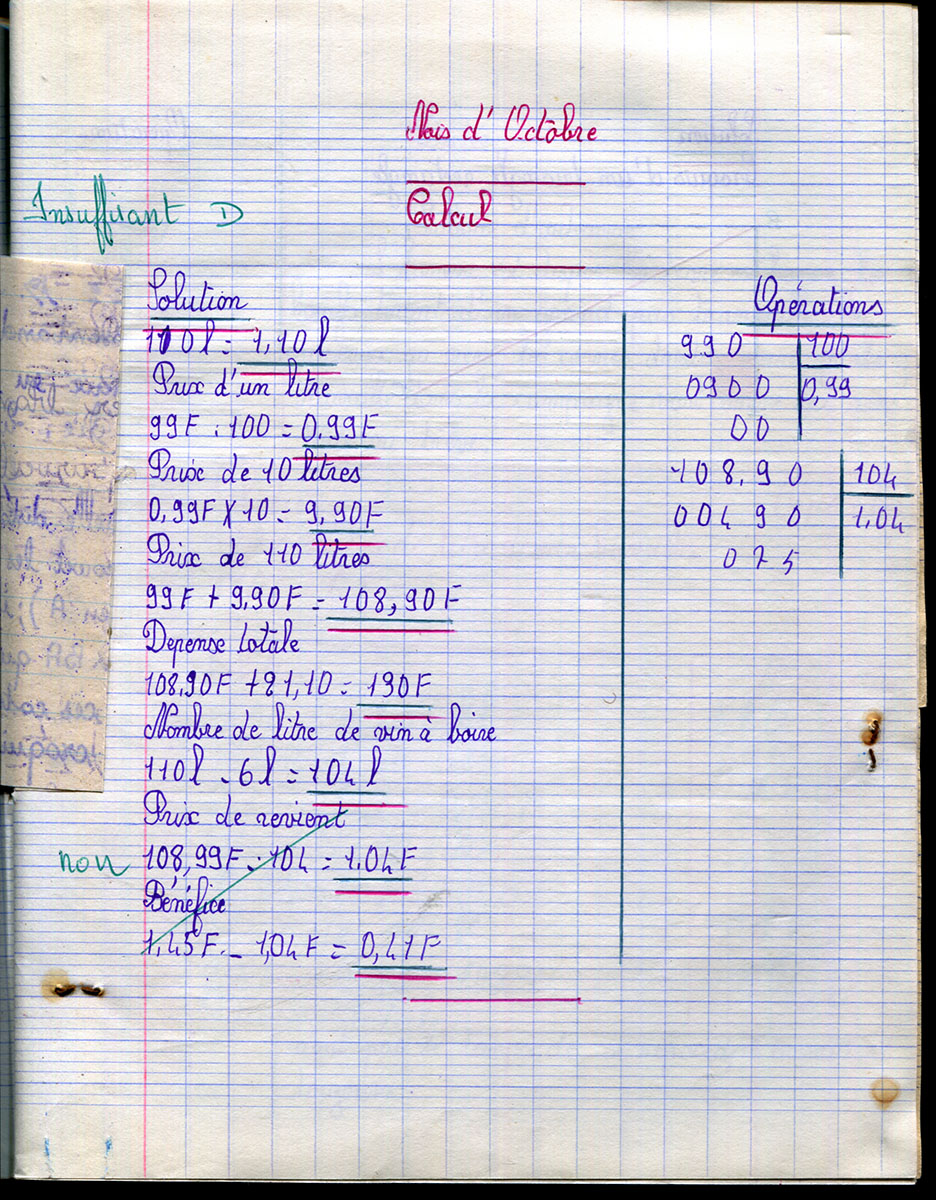 Mois d'Octobre
Insuffisant D
Calcul
Solution
110l = 1,10l
Prix d'un litre
99F : 100 = 0,99F
Prix de 10 litres
0,99F x 10 = 9,90F
Prix de 110 litres
99F + 9,90F = 108,90F
Depense totale
108,90F + 81,10 = 190F
Nombre de litre de vin à boire
110l - 6l = 104l
Prix de revient
non 108,99F : 104 = 1,04F
Bénéfice
1,45F - 1,04F = 0,41F
Opérations
990 100
0900 0,99
00
108,90 104
00490 1,04
075